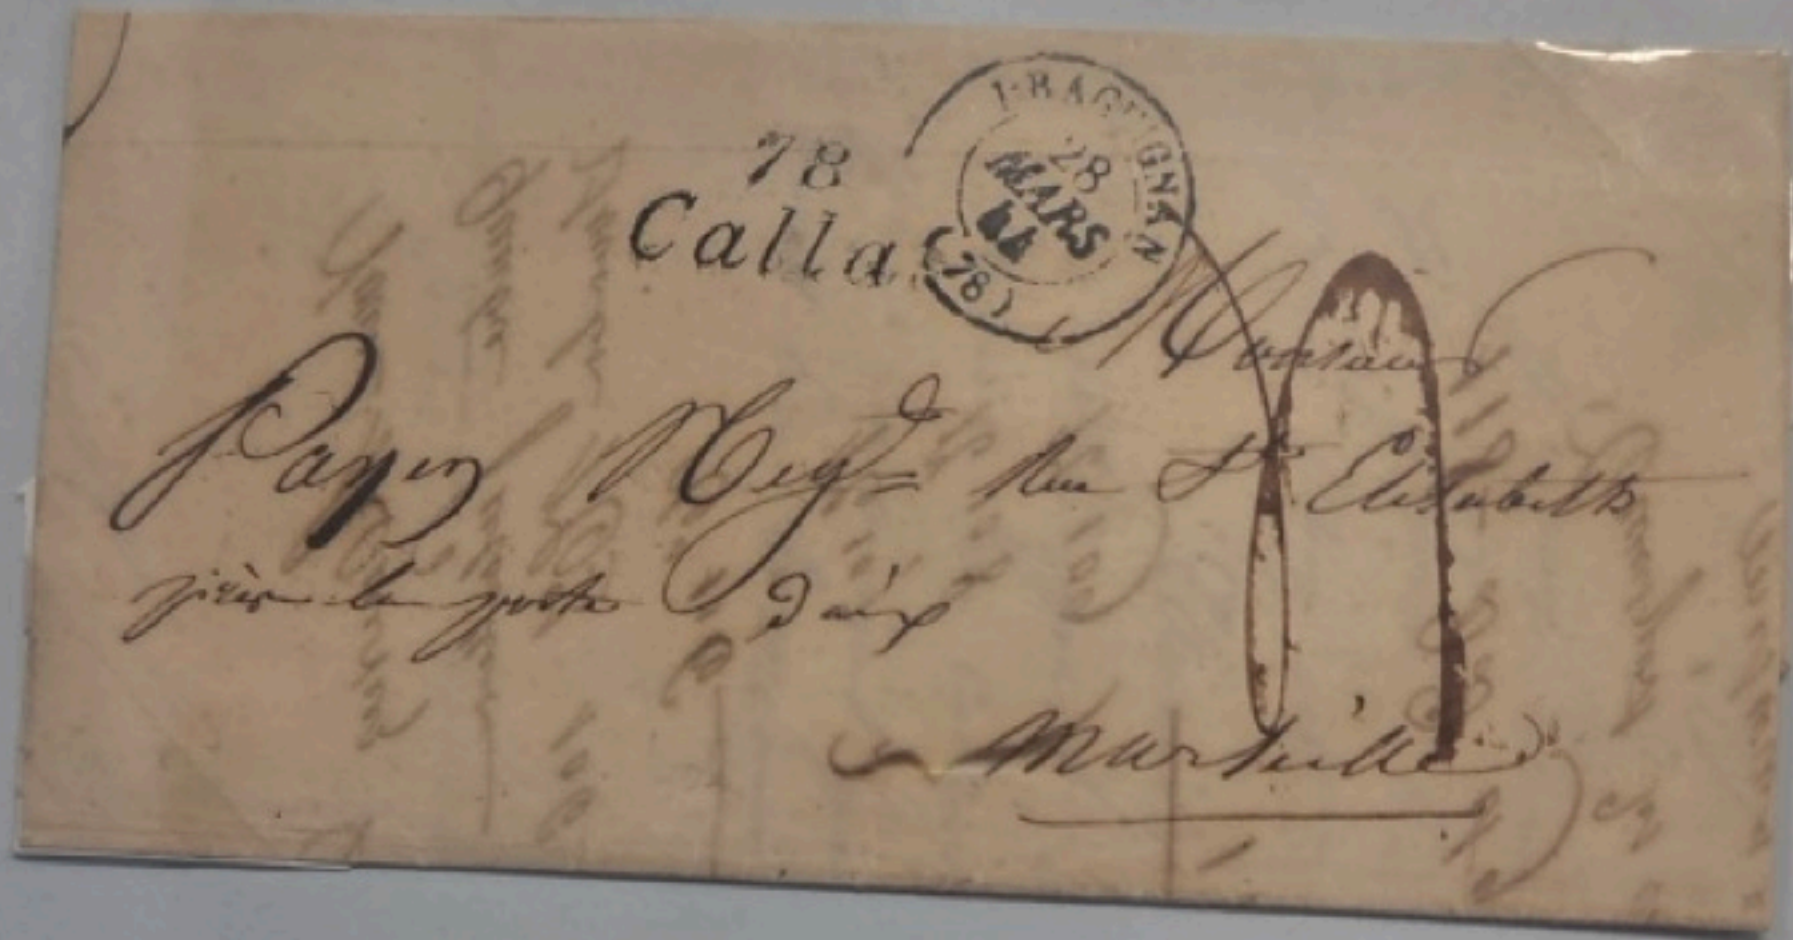 78
Callas
DRAGUIGNAN
28
MARS
44
(78)
Monsieur
Payen Negt Rue Ste Elisabeth
près la porte d'aix
Marseille